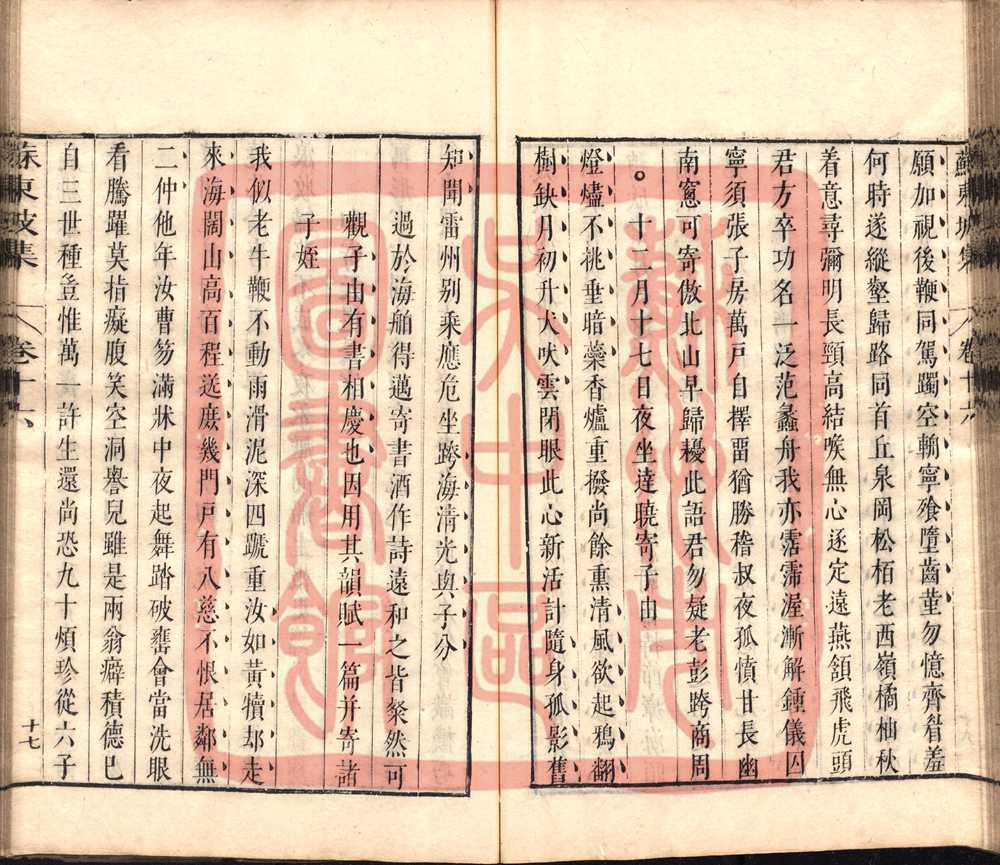 蘇東坡集 卷十六
願加視後鞭同駕躅空輈寧飧墮齒菫勿憶齊眥羞
何時遂縱壑歸路同首丘泉岡松栢老西嶺橘柚秋
着意尋彌明長頸高結喉無心逐定遠燕頷飛虎頭
君方卒功名一泛范蠡舟我亦霑霈渥漸解鍾儀囚
寧須張子房萬戶自擇畱猶勝稽叔夜孤憤甘長幽
南窻可寄傲北山早歸耰此語君勿疑老彭跨商周
十二月十七日夜坐達曉寄子由
燈燼不挑垂暗蘂香爐重撥尚餘熏清風欲起鴉翻
樹缺月初升犬吠雲閉眼此心新活計隨身孤影舊
知聞雷州别乘應危坐跨海清光與子分
過於海舶得邁寄書酒作詩遠和之皆粲然可
觀子由有書相慶也因用其韻賦一篇并寄諸
子姪
我似老牛鞭不動雨滑泥深四蹏重汝如黃犢却走
來海闊山高百程送庶幾門戸有八慈不恨居鄰無
二仲他年汝曹笏滿牀中夜起舞踏破甕會當洗眼
看騰躍莫指癡腹笑空洞譽兒雖是兩翁癖積德已
自三世種豈惟萬一許生還尚恐九十煩珍從六子
蘇東坡集 卷十六
十七
圖書館